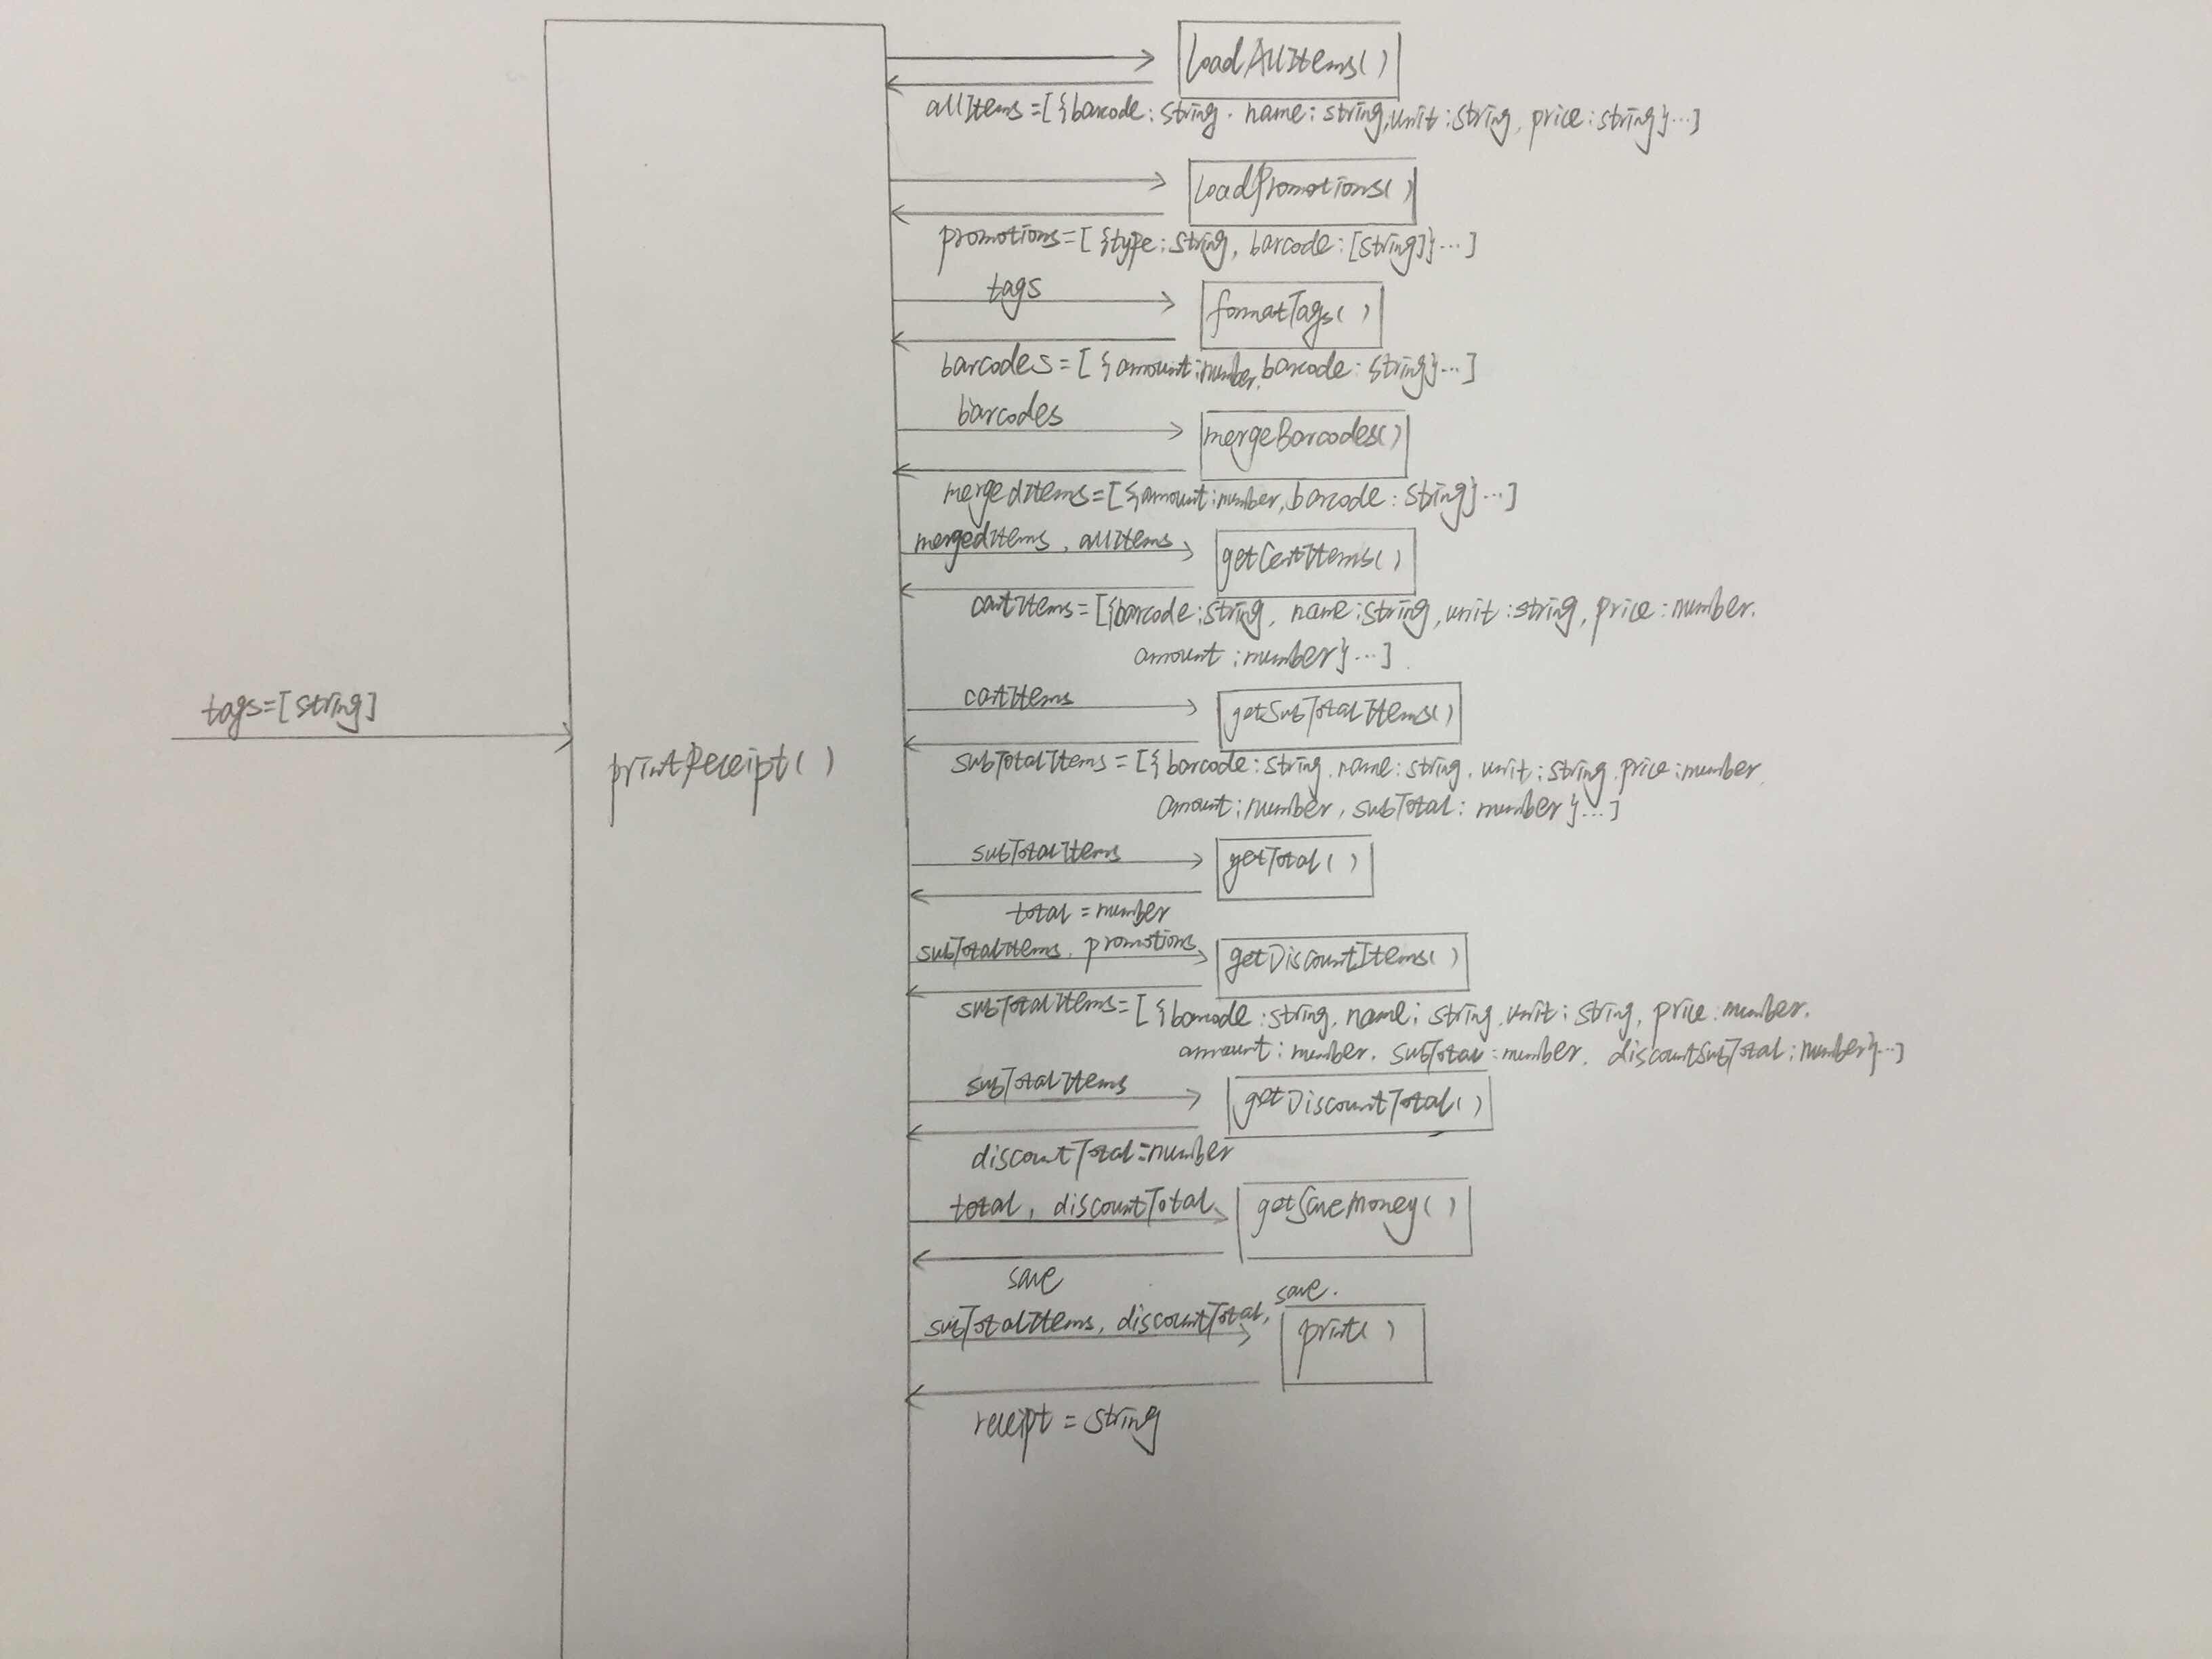 tags=[string]
printReceipt()
loadAllItems()
allItems=[{barcode:string, name:string, unit:string, price:string}...]
loadPromotions()
promotions=[{type:string, barcode:[string]}...]
tags
formatTags()
barcodes=[{amount:number, barcode:string}...]
barcodes
mergeBarcodes()
mergedItems=[{amount:number, barcode:string}...]
mergedItems, allItems
getCartItems()
cartItems=[{barcode:string, name:string, unit:string, price:number.
amount:number}...]
cartItems
getSubTotalItems()
subTotalItems=[{barcode:string, name:string, unit:string, price:number.
amount:number, subTotal:number}...]
subTotalItems
getTotal()
total=number
subTotalItems, promotions
getDiscountItems()
subTotalItems=[{barcode:string, name:string, unit:string, price:number.
amount:number, subTotal:number. discountSubTotal:number}...]
subTotalItems
getDiscountTotal()
discountTotal=number
total, discountTotal
getSaveMoney()
save
subTotalItems, discountTotal, save.
print()
receipt=string